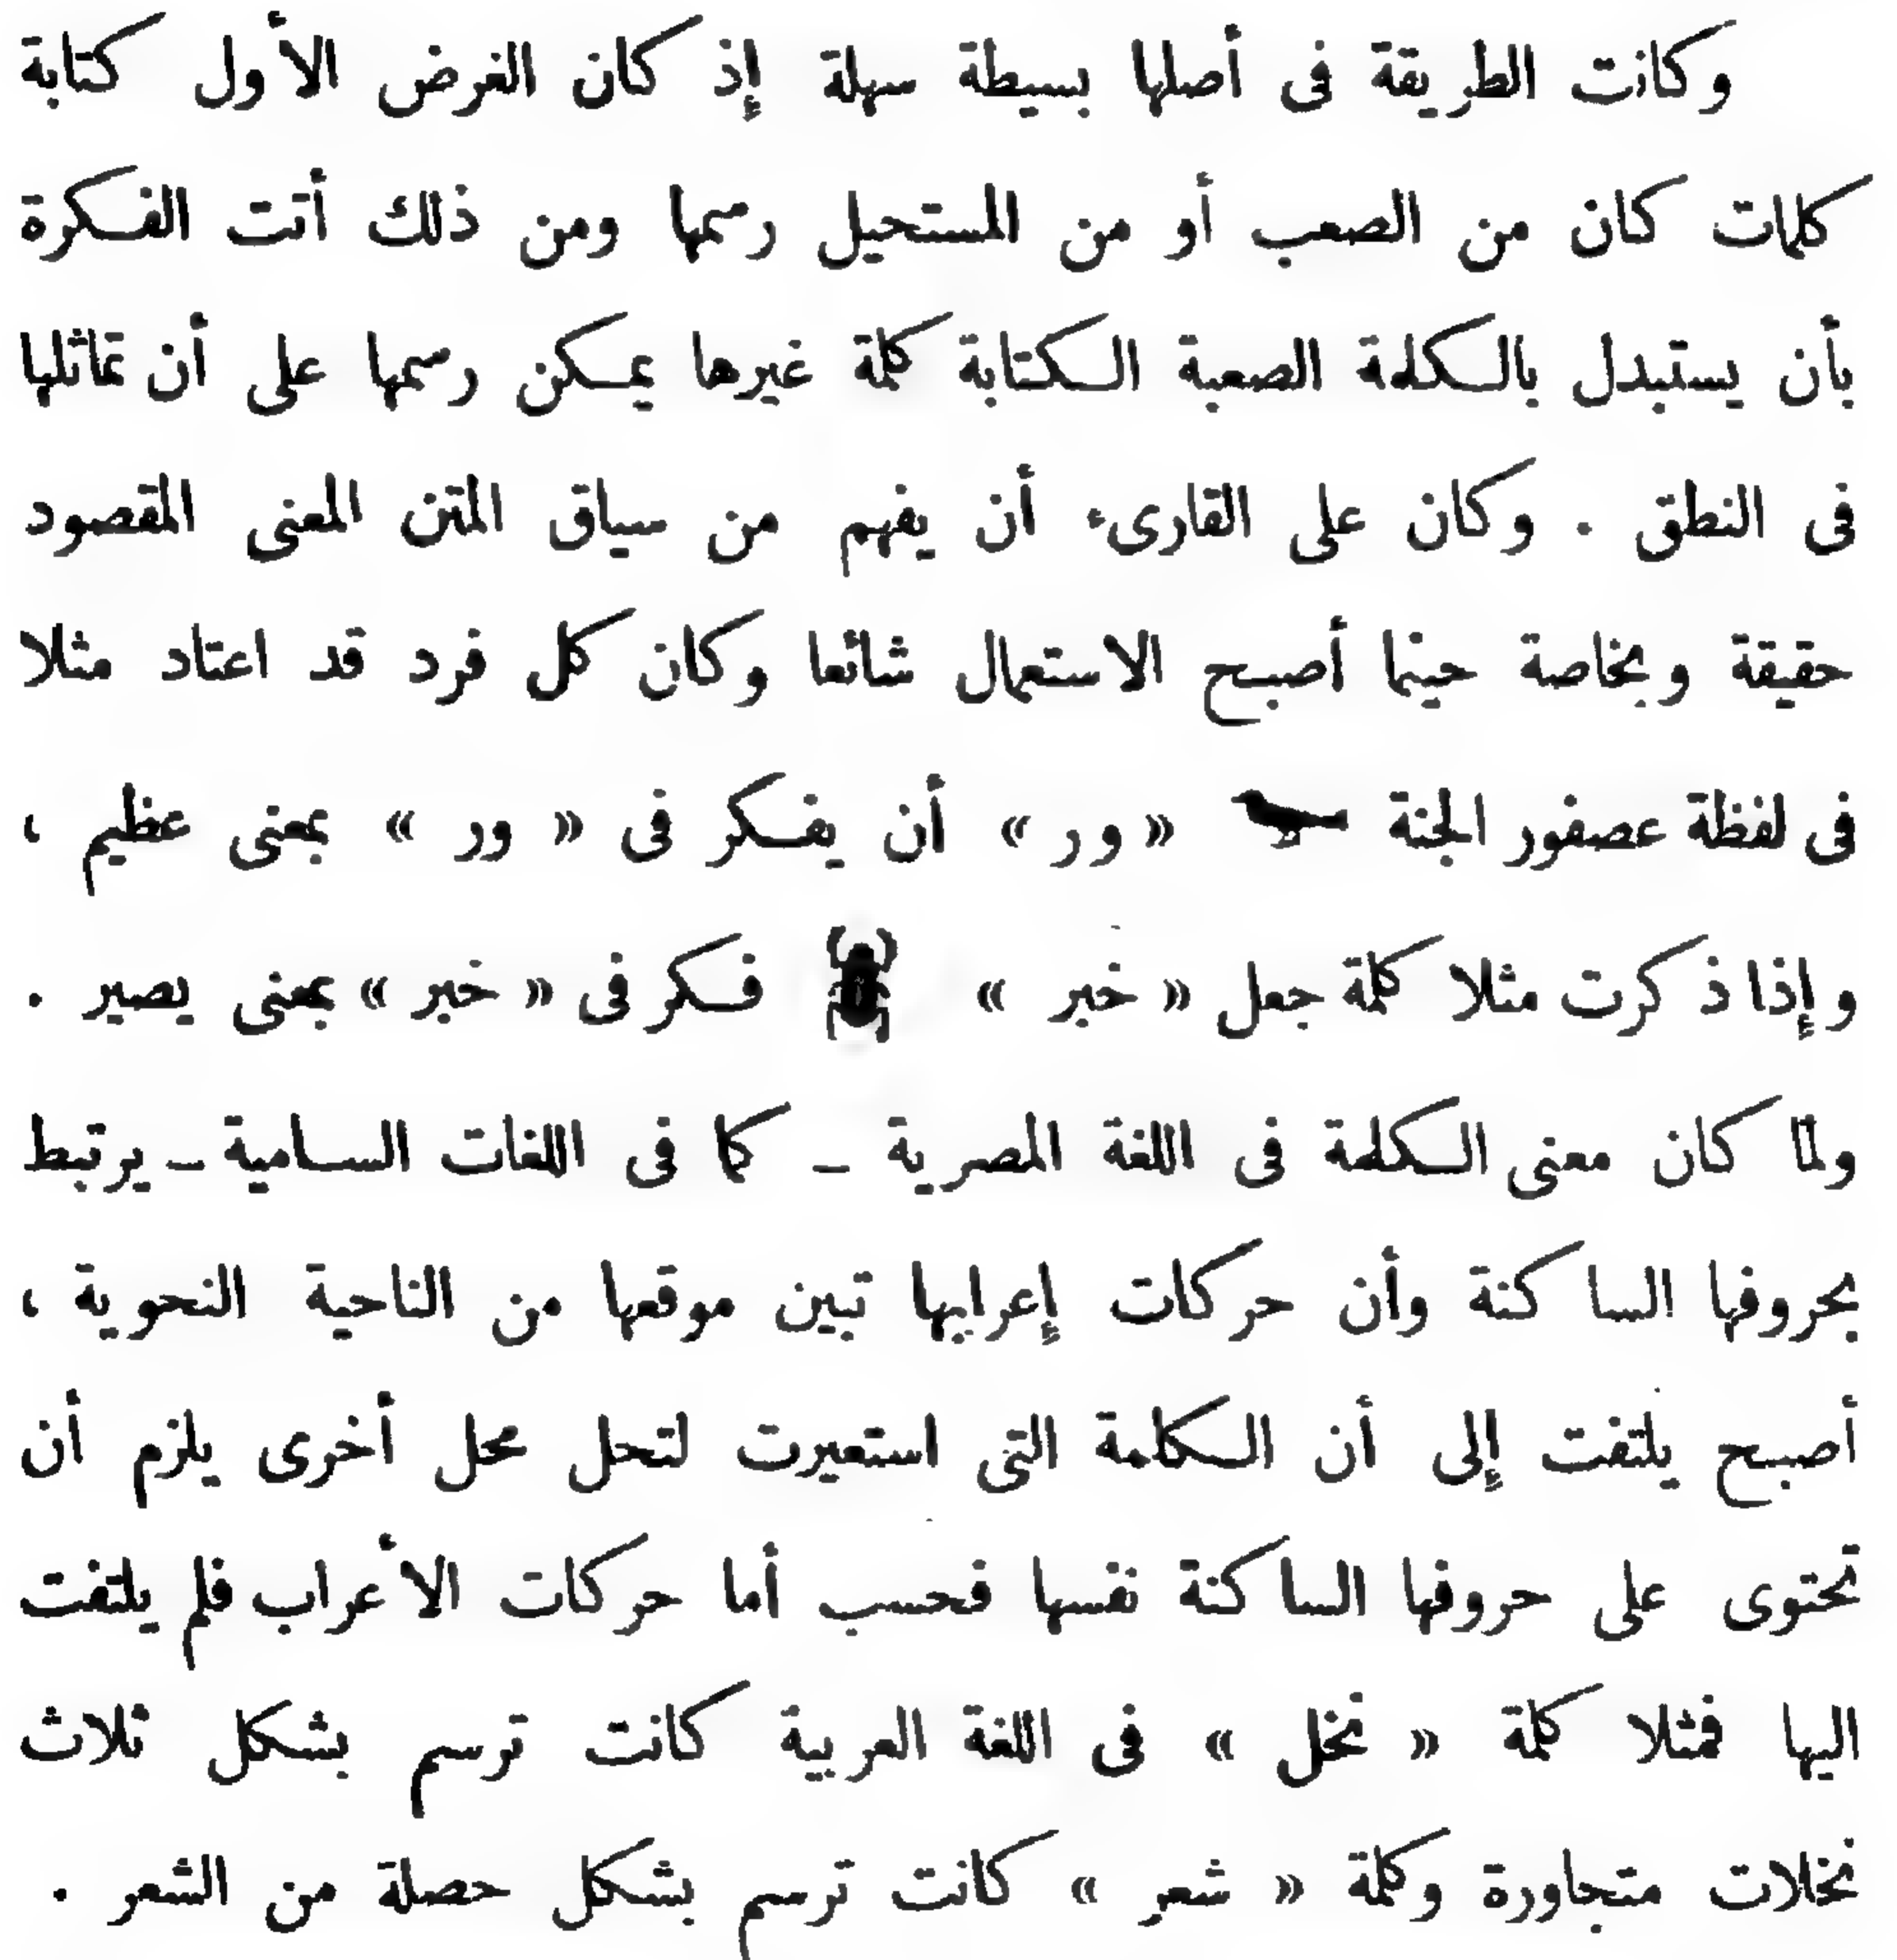 وكانت الطريقة فى أصلها بسيطة سهلة إذ كان الغرض الأول كتابة
كلمات كان من الصعب أو من المستحيل رسمها ومن ذلك أتت الفكرة
بأن يستبدل بالكلمة الصعبة الكتابة كلمة غيرها يمكن رسمها على أن تماثلها
فى النطق . وكان على القارىء أن يفهم من سياق المتن المعنى المقصود
حقيقة وبخاصة حينما أصبح الاستعمال شائعا وكان كل فرد قد اعتاد مثلا
فى لفظة عصفور الجنة « ور » أن يفكر فى « ور » بمعنى عظيم ،
وإذا ذكرت مثلا كلمة جعل « خبر » فكر فى « خبر » بمعنى يصير .
ولما كان معنى الكلمة فى اللغة المصرية – كما فى اللغات السامية – يرتبط
بحروفها الساكنة وأن حركات إعرابها تبين موقعها من الناحية النحوية ،
أصبح يلتفت إلى أن الكلمة التى استعيرت لتحل محل أخرى يلزم أن
تحتوى على حروفها الساكنة نفسها فحسب أما حركات الأعراب فلم يلتفت
اليها فمثلا كلمة « نخل » فى اللغة العربية كانت ترسم بشكل ثلاث
نخلات متجاورة وكلمة « شعر » كانت ترسم بشكل حصلة من الشعر .